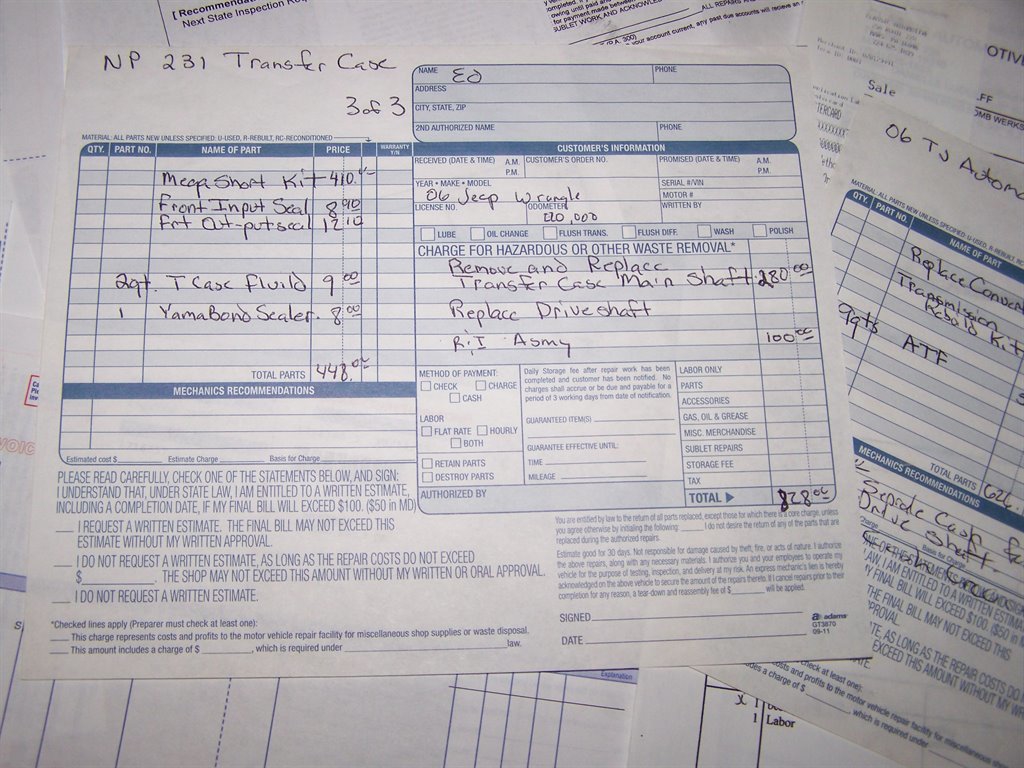 [ Recommended
Next State Inspection
NP 231 Transfer Case
3 of 3
NAME Ed PHONE
ADDRESS
CITY, STATE, ZIP
2ND AUTHORIZED NAME PHONE
CUSTOMER'S INFORMATION
MATERIAL: ALL PARTS NEW UNLESS SPECIFIED: U-USED, R-REBUILT, RC-RECONDITIONED
QTY. PART NO. NAME OF PART PRICE WARRANTY Y/N
Mega Short Kit 410.
Front Input Seal 8 90
Frt Out-put seal 12 10
2qt. T Case Fluild 9 00
1 YamaBond Sealer. 8 00
TOTAL PARTS 448.00
MECHANICS RECOMMENDATIONS
Estimated cost $ Estimate Charge Basis for Charge
RECEIVED (DATE & TIME) A.M. P.M. CUSTOMER'S ORDER NO. PROMISED (DATE & TIME) A.M. P.M.
YEAR • MAKE • MODEL SERIAL #/VIN
06 Jeep Wrangle MOTOR #
LICENSE NO. ODOMETER WRITTEN BY
LUBE OIL CHANGE FLUSH TRANS. FLUSH DIFF. WASH POLISH
CHARGE FOR HAZARDOUS OR OTHER WASTE REMOVAL*
Remove and Replace
Transfer Case Main Shaft 280 00
Replace Driveshaft
R;I Asmy 100 00
METHOD OF PAYMENT:
CHECK CHARGE
CASH
LABOR
FLAT RATE HOURLY
BOTH
RETAIN PARTS
DESTROY PARTS
AUTHORIZED BY
Daily Storage fee after repair work has been
completed and customer has been notified. No
charges shall accrue or be due and payable for a
period of 3 working days from date of notification.
GUARANTEED ITEM(S)
GUARANTEE EFFECTIVE UNTIL:
TIME
MILEAGE
LABOR ONLY
PARTS
ACCESSORIES
GAS, OIL & GREASE
MISC. MERCHANDISE
SUBLET REPAIRS
STORAGE FEE
TAX
TOTAL 828 00
PLEASE READ CAREFULLY, CHECK ONE OF THE STATEMENTS BELOW, AND SIGN:
I UNDERSTAND THAT, UNDER STATE LAW, I AM ENTITLED TO A WRITTEN ESTIMATE,
INCLUDING A COMPLETION DATE, IF MY FINAL BILL WILL EXCEED $100. ($50 in MD)
I REQUEST A WRITTEN ESTIMATE. THE FINAL BILL MAY NOT EXCEED THIS
ESTIMATE WITHOUT MY WRITTEN APPROVAL.
I DO NOT REQUEST A WRITTEN ESTIMATE, AS LONG AS THE REPAIR COSTS DO NOT EXCEED
$ . THE SHOP MAY NOT EXCEED THIS AMOUNT WITHOUT MY WRITTEN OR ORAL APPROVAL.
I DO NOT REQUEST A WRITTEN ESTIMATE.
*Checked lines apply (Preparer must check at least one):
This charge represents costs and profits to the motor vehicle repair facility for miscellaneous shop supplies or waste disposal.
This amount includes a charge of $ , which is required under law.
You are entitled by law to the return of all parts replaced, except those for which there is a core charge, unless
you agree otherwise by initialing the following: I do not desire the return of any of the parts that are
replaced during the authorized repairs.
Estimate good for 30 days. Not responsible for damage caused by theft, fire, or acts of nature. I authorize
the above repairs, along with any necessary materials. I authorize you and your employees to operate my
vehicle for the purpose of testing, inspection, and delivery at my risk. An express mechanic's lien is hereby
acknowledged on the above vehicle to secure the amount of the repairs thereto. If I cancel repairs prior to their
completion for any reason, a tear-down and reassembly fee of $ will be applied.
SIGNED
DATE
adams
GT3870
09-11
Sale
06 TJ Automa
QTY. PART NO. NAME OF PART
Transmission
Rebuild Kit
9qts ATF
TOTAL PARTS 626.
MECHANICS RECOMMENDATIONS
Drive Shaft
Explanation
x 1
1 Labor